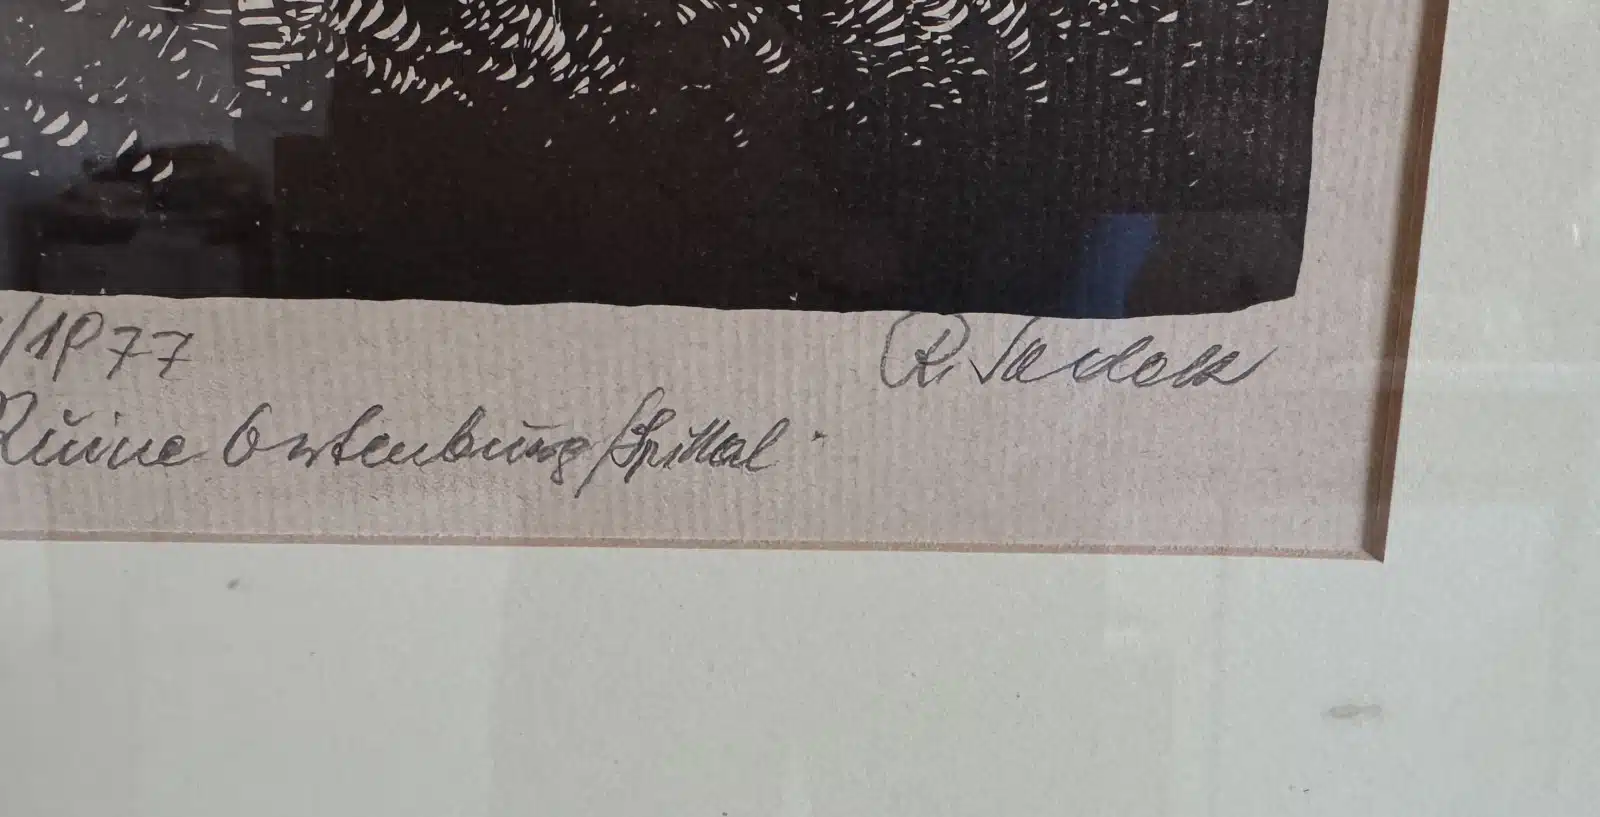 /1977 R. Sadok
Ruine Ortenburg/Spittal